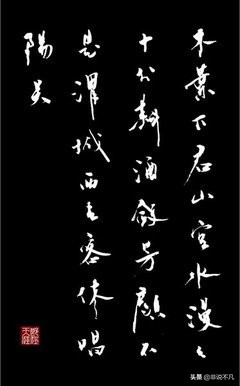 木葉下君山空水漫々
十分斟酒斂芳顏不
是渭城西去客休唱
陽关
头条 @非说不凡